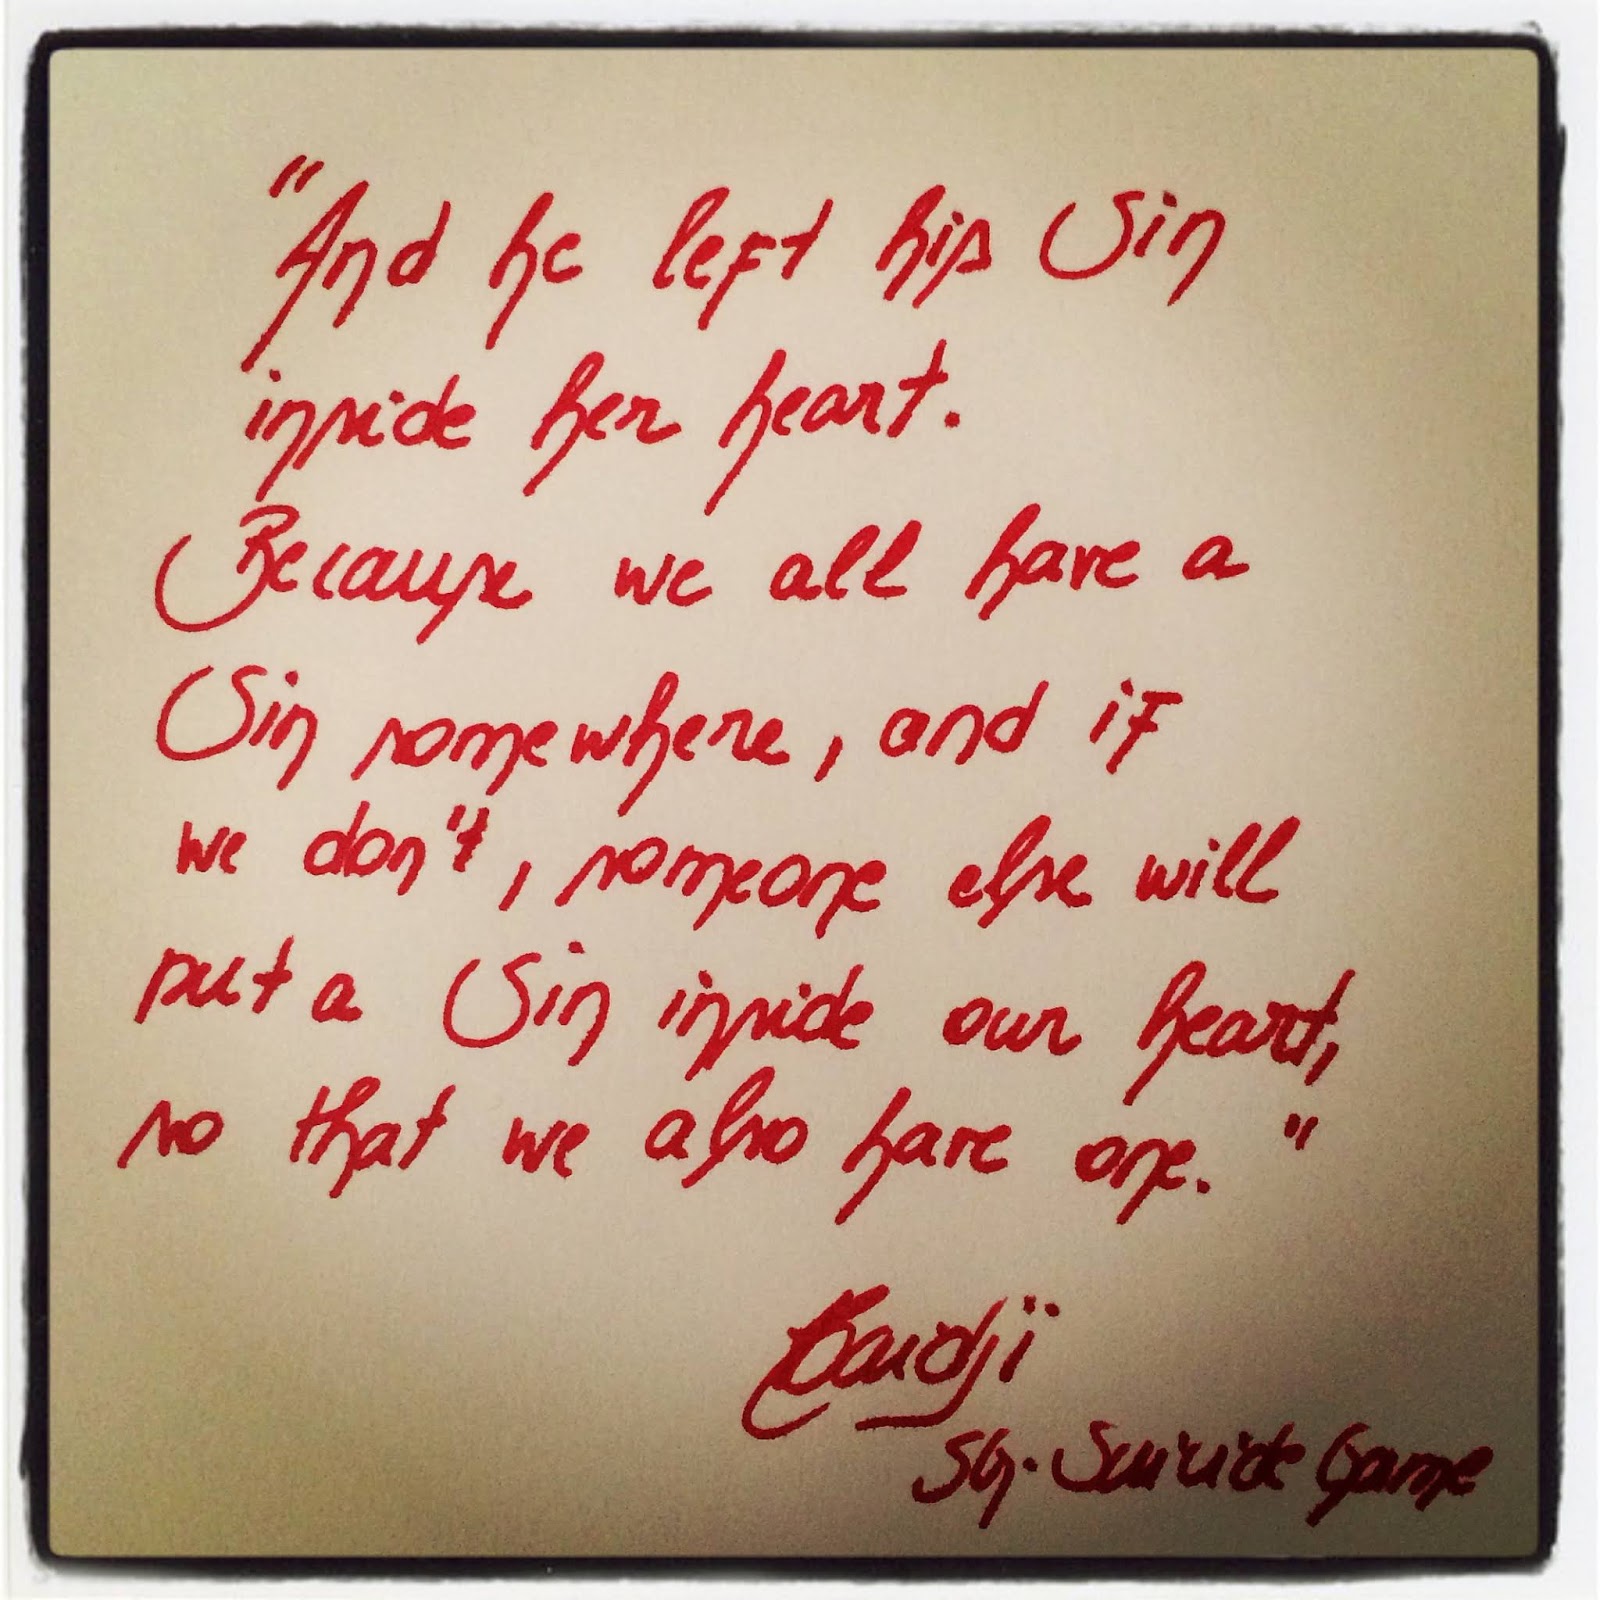 "And he left his Sin
inside her heart.
Because we all have a
Sin somewhere, and if
we don't, someone else will
put a Sin inside our heart,
so that we also have one."
Baudji
SG. Suicide Game